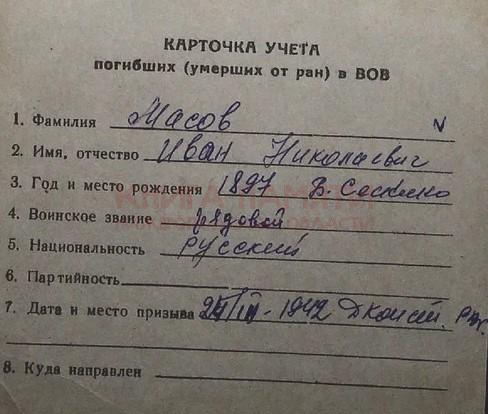 КАРТОЧКА УЧЕТА
погибших (умерших от ран) в ВОВ
1. Фамилия Масов
2. Имя, отчество Иван Николаевич
3. Год и место рождения 1897
4. Воинское звание рядовой
5. Национальность русский
6. Партийность
7. Дата и место призыва 1942
8. Куда направлен
КНИГА ПАМЯТИ
ОБЛАСТИ